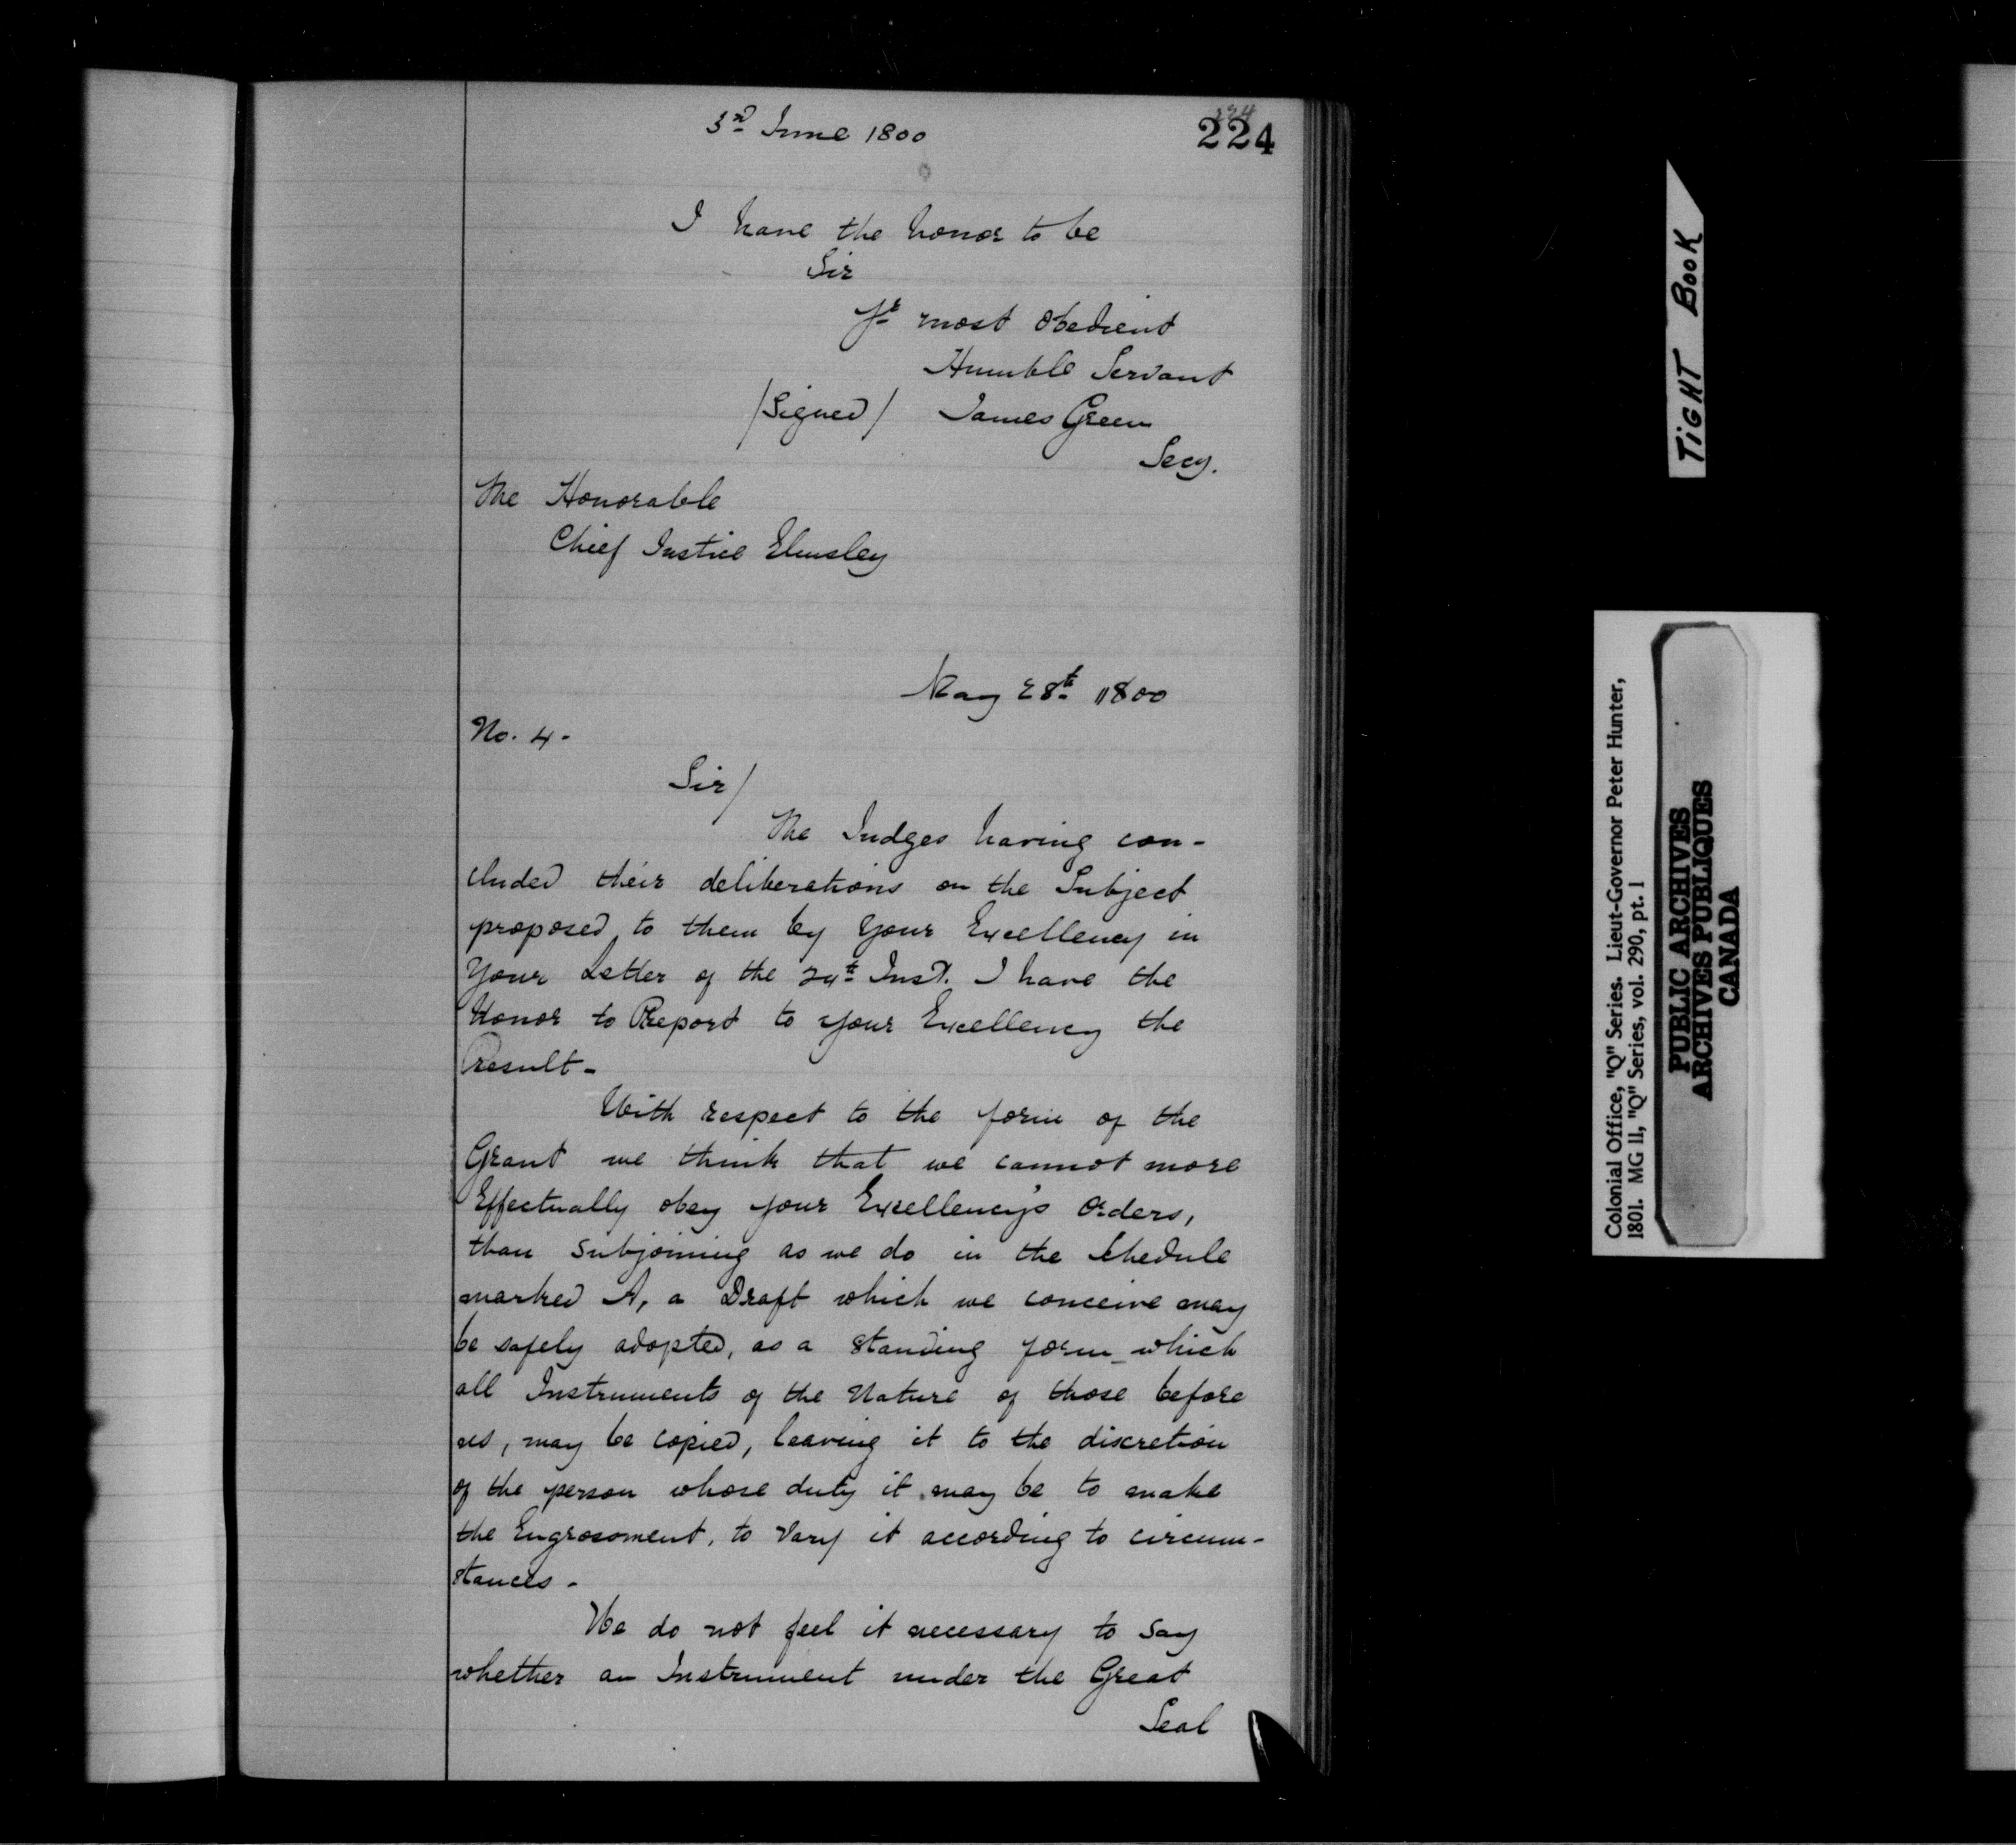 3rd June 1800
224
224
I have the honor to be
Sir
Yr most Obedient
Humble Servant
/Signed/ James Green
Secy.
The Honorable
Chief Justice Elmsley
May 28th 1800
No. 4-
Sir/
The Judges having con-
cluded their deliberations on the Subject
proposed to them by Your Excellency in
Your Letter of the 24th Inst. I have the
Honor to Report to your Excellency the
result-
With respect to the form of the
Grant we think that we cannot more
Effectually obey your Excellency's Orders,
than subjoining as we do in the Schedule
marked A, a Draft which we conceive may
be safely adopted, as a standing form which
all Instruments of the Nature of those before
us, may be copied, leaving it to the discretion
of the person whose duty it may be to make
the Engrossment, to vary it according to circum-
stances-
We do not feel it necessary to say
whether an Instrument under the Great
Seal
TIGHT BOOK
Colonial Office, "Q" Series. Lieut-Governor Peter Hunter,
1801. MG 11, "Q" Series, vol. 290, pt. 1
PUBLIC ARCHIVES
ARCHIVES PUBLIQUES
CANADA